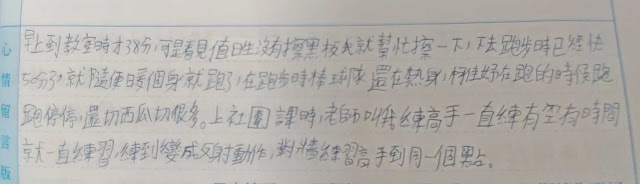 早上到教室時才38分,可是看見值日生沒有擦黑板我就幫忙擦一下,下去跑步時已經快
50分了,就隨便暖個身就跑了,在跑步時棒球隊還在熱身,楊佳妤在跑的時候跑
跑停停,還切西瓜切很多。上社團課時,老師叫我練高手一直練有空有時間
就一直練習,練到變成反射動作,對牆練習高手到同一個點。
心情留言版